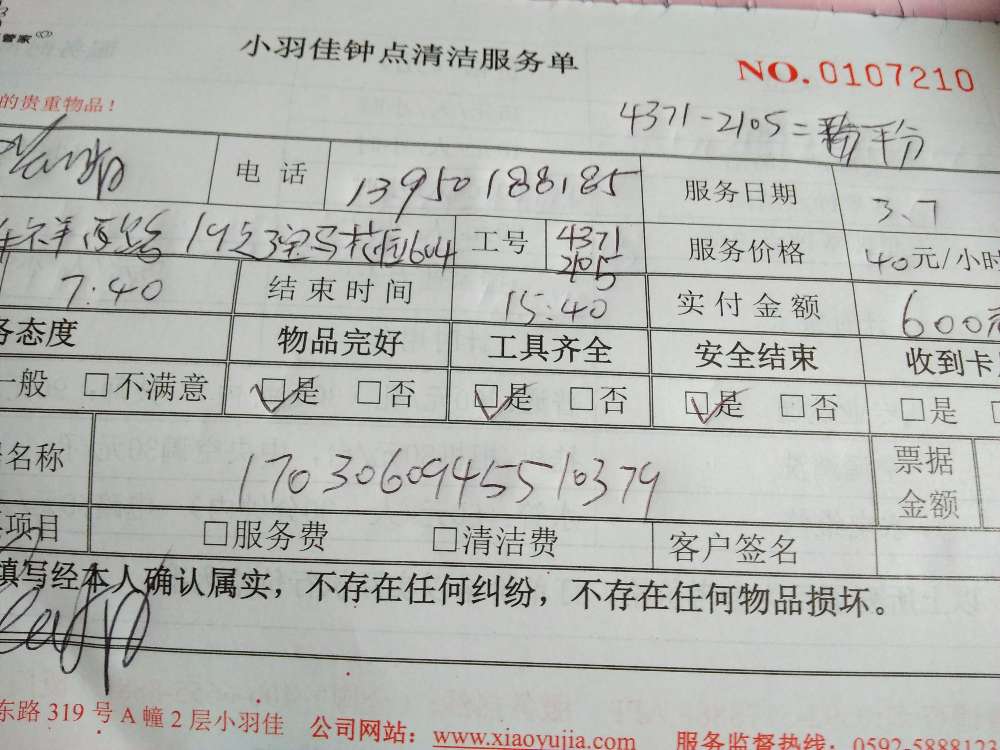 管家
小羽佳钟点清洁服务单
NO.0107210
的贵重物品！
4371-2105= 平分
电 话 13950188185 服务日期 3.7
19之 宝马花园604 工号 4371 2105 服务价格 40元/小时
7:40 结束时间 15:40 实付金额 600元
务态度 物品完好 工具齐全 安全结束 收到卡
一般 □不满意 ☑是 □否 ☑是 □否 ☑是 □否 □是
名称 1703060945510379 票据金额
项目 □服务费 □清洁费 客户签名
填写经本人确认属实，不存在任何纠纷，不存在任何物品损坏。
东路 319 号 A 幢 2 层小羽佳 公司网站：www.xiaoyujia.com 服务监督热线：0592-5888123